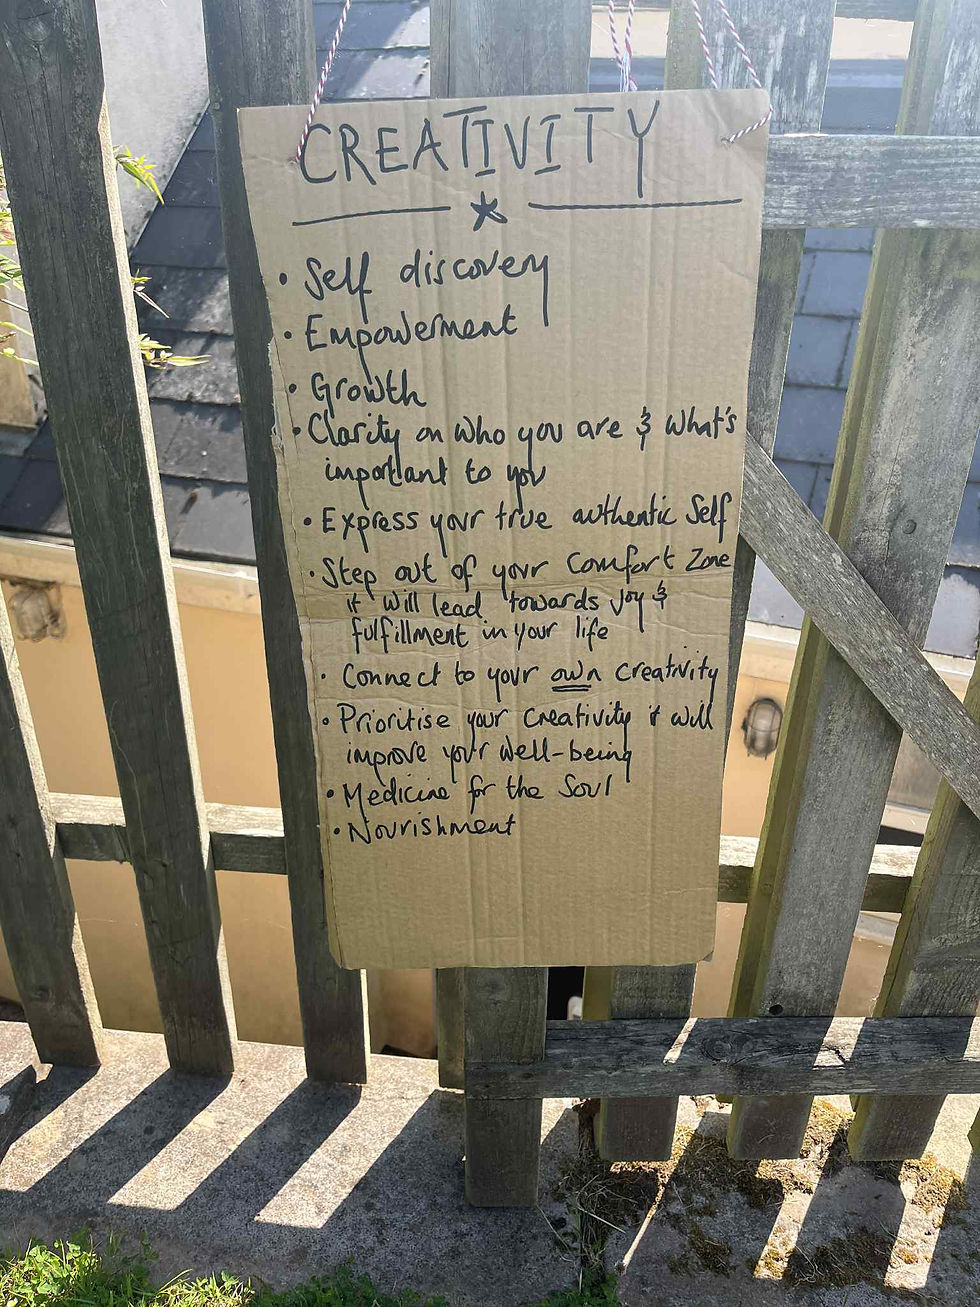 CREATIVITY
• Self discovery
• Empowerment
• Growth
• Clarity on who you are & what's
important to you
• Express your true authentic Self
• Step out of your Comfort Zone
it will lead towards joy &
fulfillment in your life
• Connect to your own creativity
• Prioritise your creativity it will
improve your well-being
• Medicine for the Soul
• Nourishment